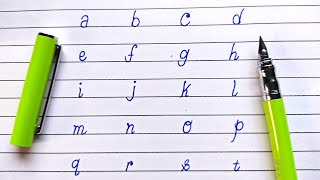 a b c d
e f g h
i j k l
m n o p
q r s t